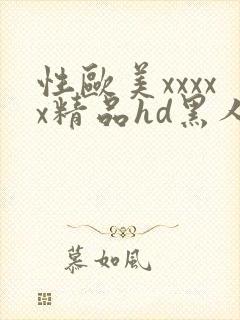 性歐美xxxx
x精品hd黑人
慕如風